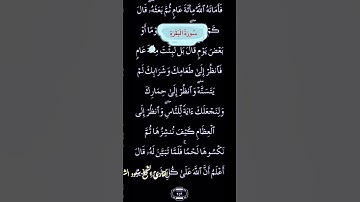 فَأَمَاتَهُ اللَّهُ مِائَةَ عَامٍ ثُمَّ بَعَثَهُ، قَالَ
كَمْ
سورة البقرة
مًا أَوْ
بَعْضَ يَوْمٍ قَالَ بَل لَّبِثْتَ عَامٍ
فَانظُرْ إِلَى طَعَامِكَ وَشَرَابِكَ لَمْ
يَتَسَنَّهْ وَانظُرْ إِلَى حِمَارِكَ
وَلِنَجْعَلَكَ ءَايَةً لِّلنَّاسِ وَانظُرْ إِلَى
الْعِظَامِ كَيْفَ نُنشِزُهَا ثُمَّ
نَكْسُوهَا لَحْمًا فَلَمَّا تَبَيَّنَ لَهُ، قَالَ
أَعْلَمُ أَنَّ اللَّهَ عَلَى